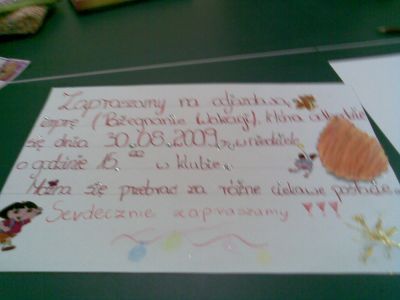 Zapraszamy na odjazdową
imprę (Pożegnanie Wakacji), która odbędzie
się dnia 30.08.2009r. w niedzielę
o godzinie 15.00 w klubie.
Można się przebrać za różne ciekawe postacie.
Serdecznie zapraszamy !!!